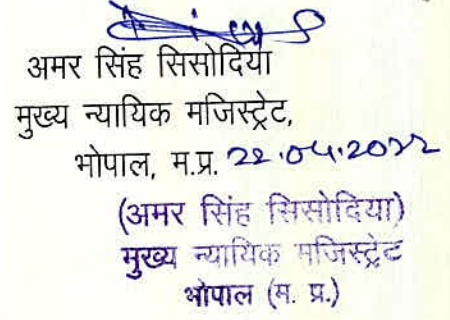 अमर सिंह सिसोदिया
मुख्य न्यायिक मजिस्ट्रेट,
भोपाल, म.प्र. 22.04.2022
(अमर सिंह सिसोदिया)
मुख्य न्यायिक मजिस्ट्रेट
भोपाल (म. प्र.)